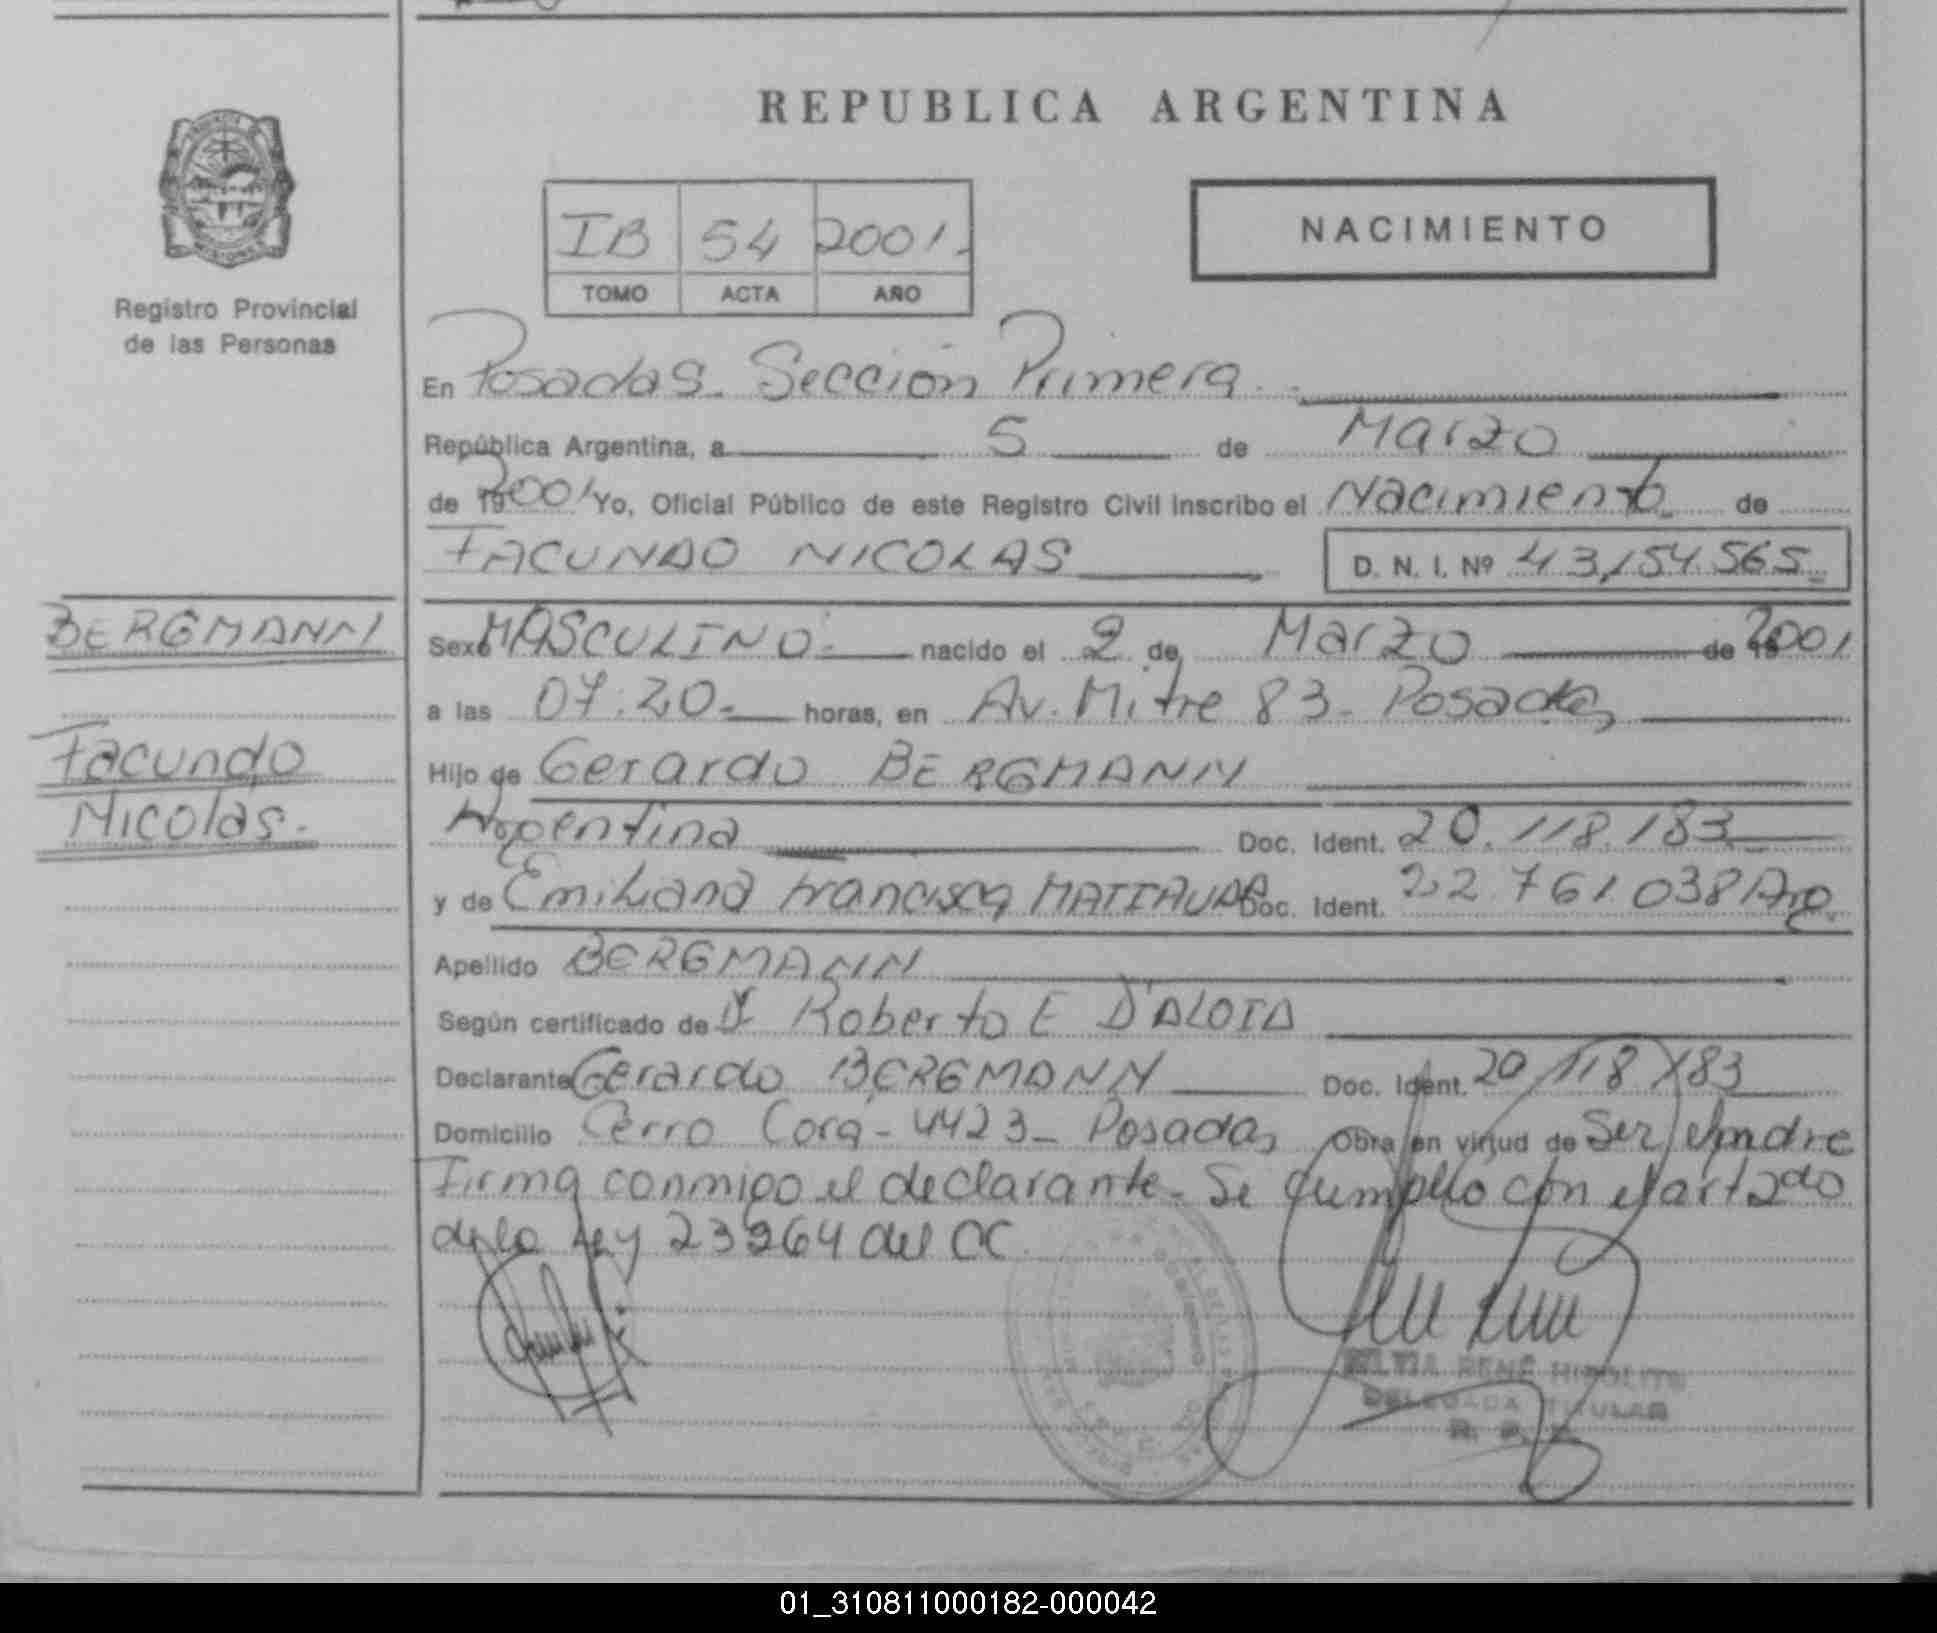 REPUBLICA ARGENTINA
IB 54 2001.
TOMO ACTA AÑO
NACIMIENTO
Registro Provincial
de las Personas
En Posadas. Sección Primera
República Argentina, a 5 de Marzo
de 2001 Yo, Oficial Público de este Registro Civil inscribo el Nacimiento de
FACUNDO NICOLAS D. N. I. Nº 43.154.565
BERGMANN
Facundo
Nicolas.
Sexo MASCULINO nacido el 2 de Marzo de 2001
a las 07:20 horas, en Av. Mitre 83 - Posadas
Hijo de Gerardo BERGMANN
Argentina Doc. Ident. 20.118.183
y de Emiliana Francisca Doc. Ident. 22.761.038 Arg.
Apellido BERGMANN
Según certificado de Roberto E D'ALOIA
Declarante Gerardo BERGMANN Doc. Ident. 20.118.183
Domicilio Cerro Corá - 4423 - Posadas Obra en virtud de Ser el padre
Firma conmigo el declarante. Se cumplio con el art 2do
de la Ley 23264 del CC.
SILVIA RENÉ HIPOLITO
DELEGADA TITULAR
01_310811000182-000042